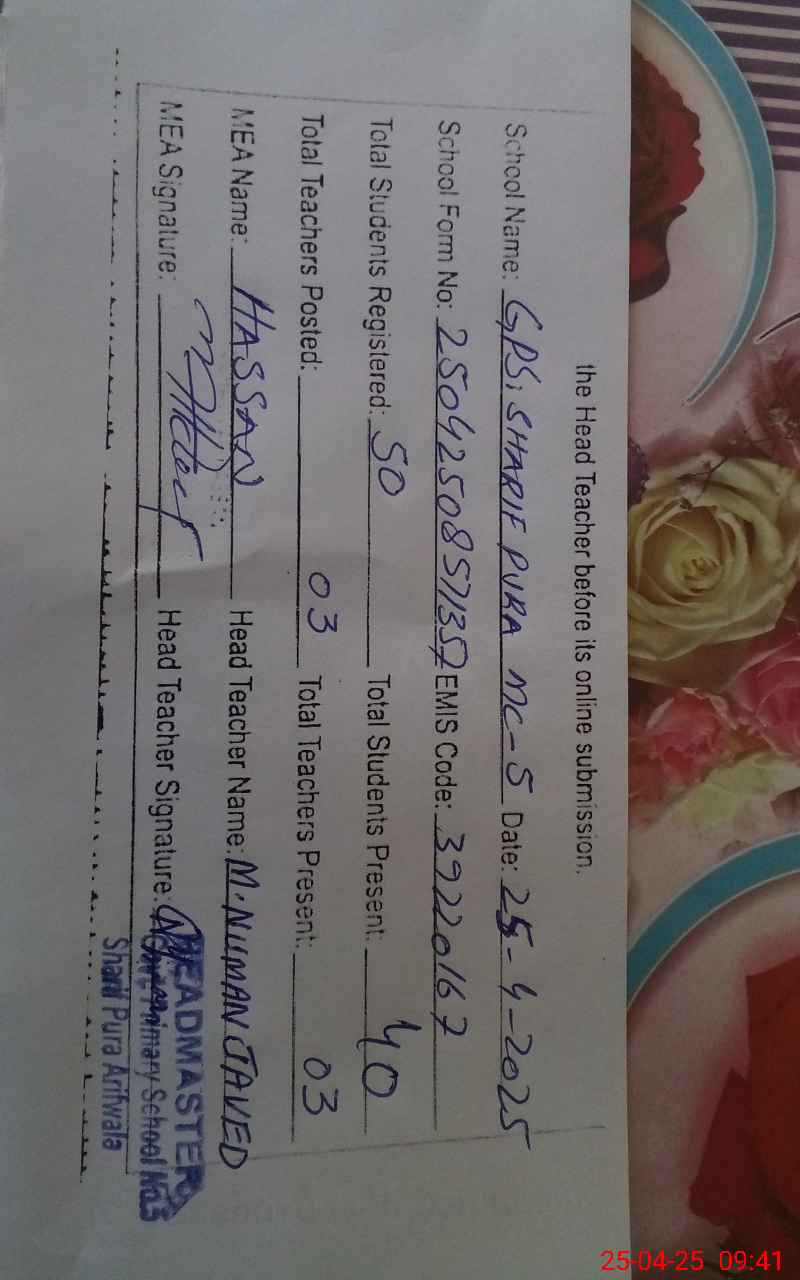 the Head Teacher before its online submission.
School Name: GPS; SHARIF PURA MC-5 Date: 25-4-2025
School Form No: 25042508571357 EMIS Code: 39220167
Total Students Registered: 50 Total Students Present: 40
Total Teachers Posted: 03 Total Teachers Present: 03
MEA Name: HASSAN Head Teacher Name: M. NUMAN JAVED
MEA Signature: Head Teacher Signature:
HEADMASTER
Primary School No.5
Sharif Pura Arifwala
25-04-25 09:41